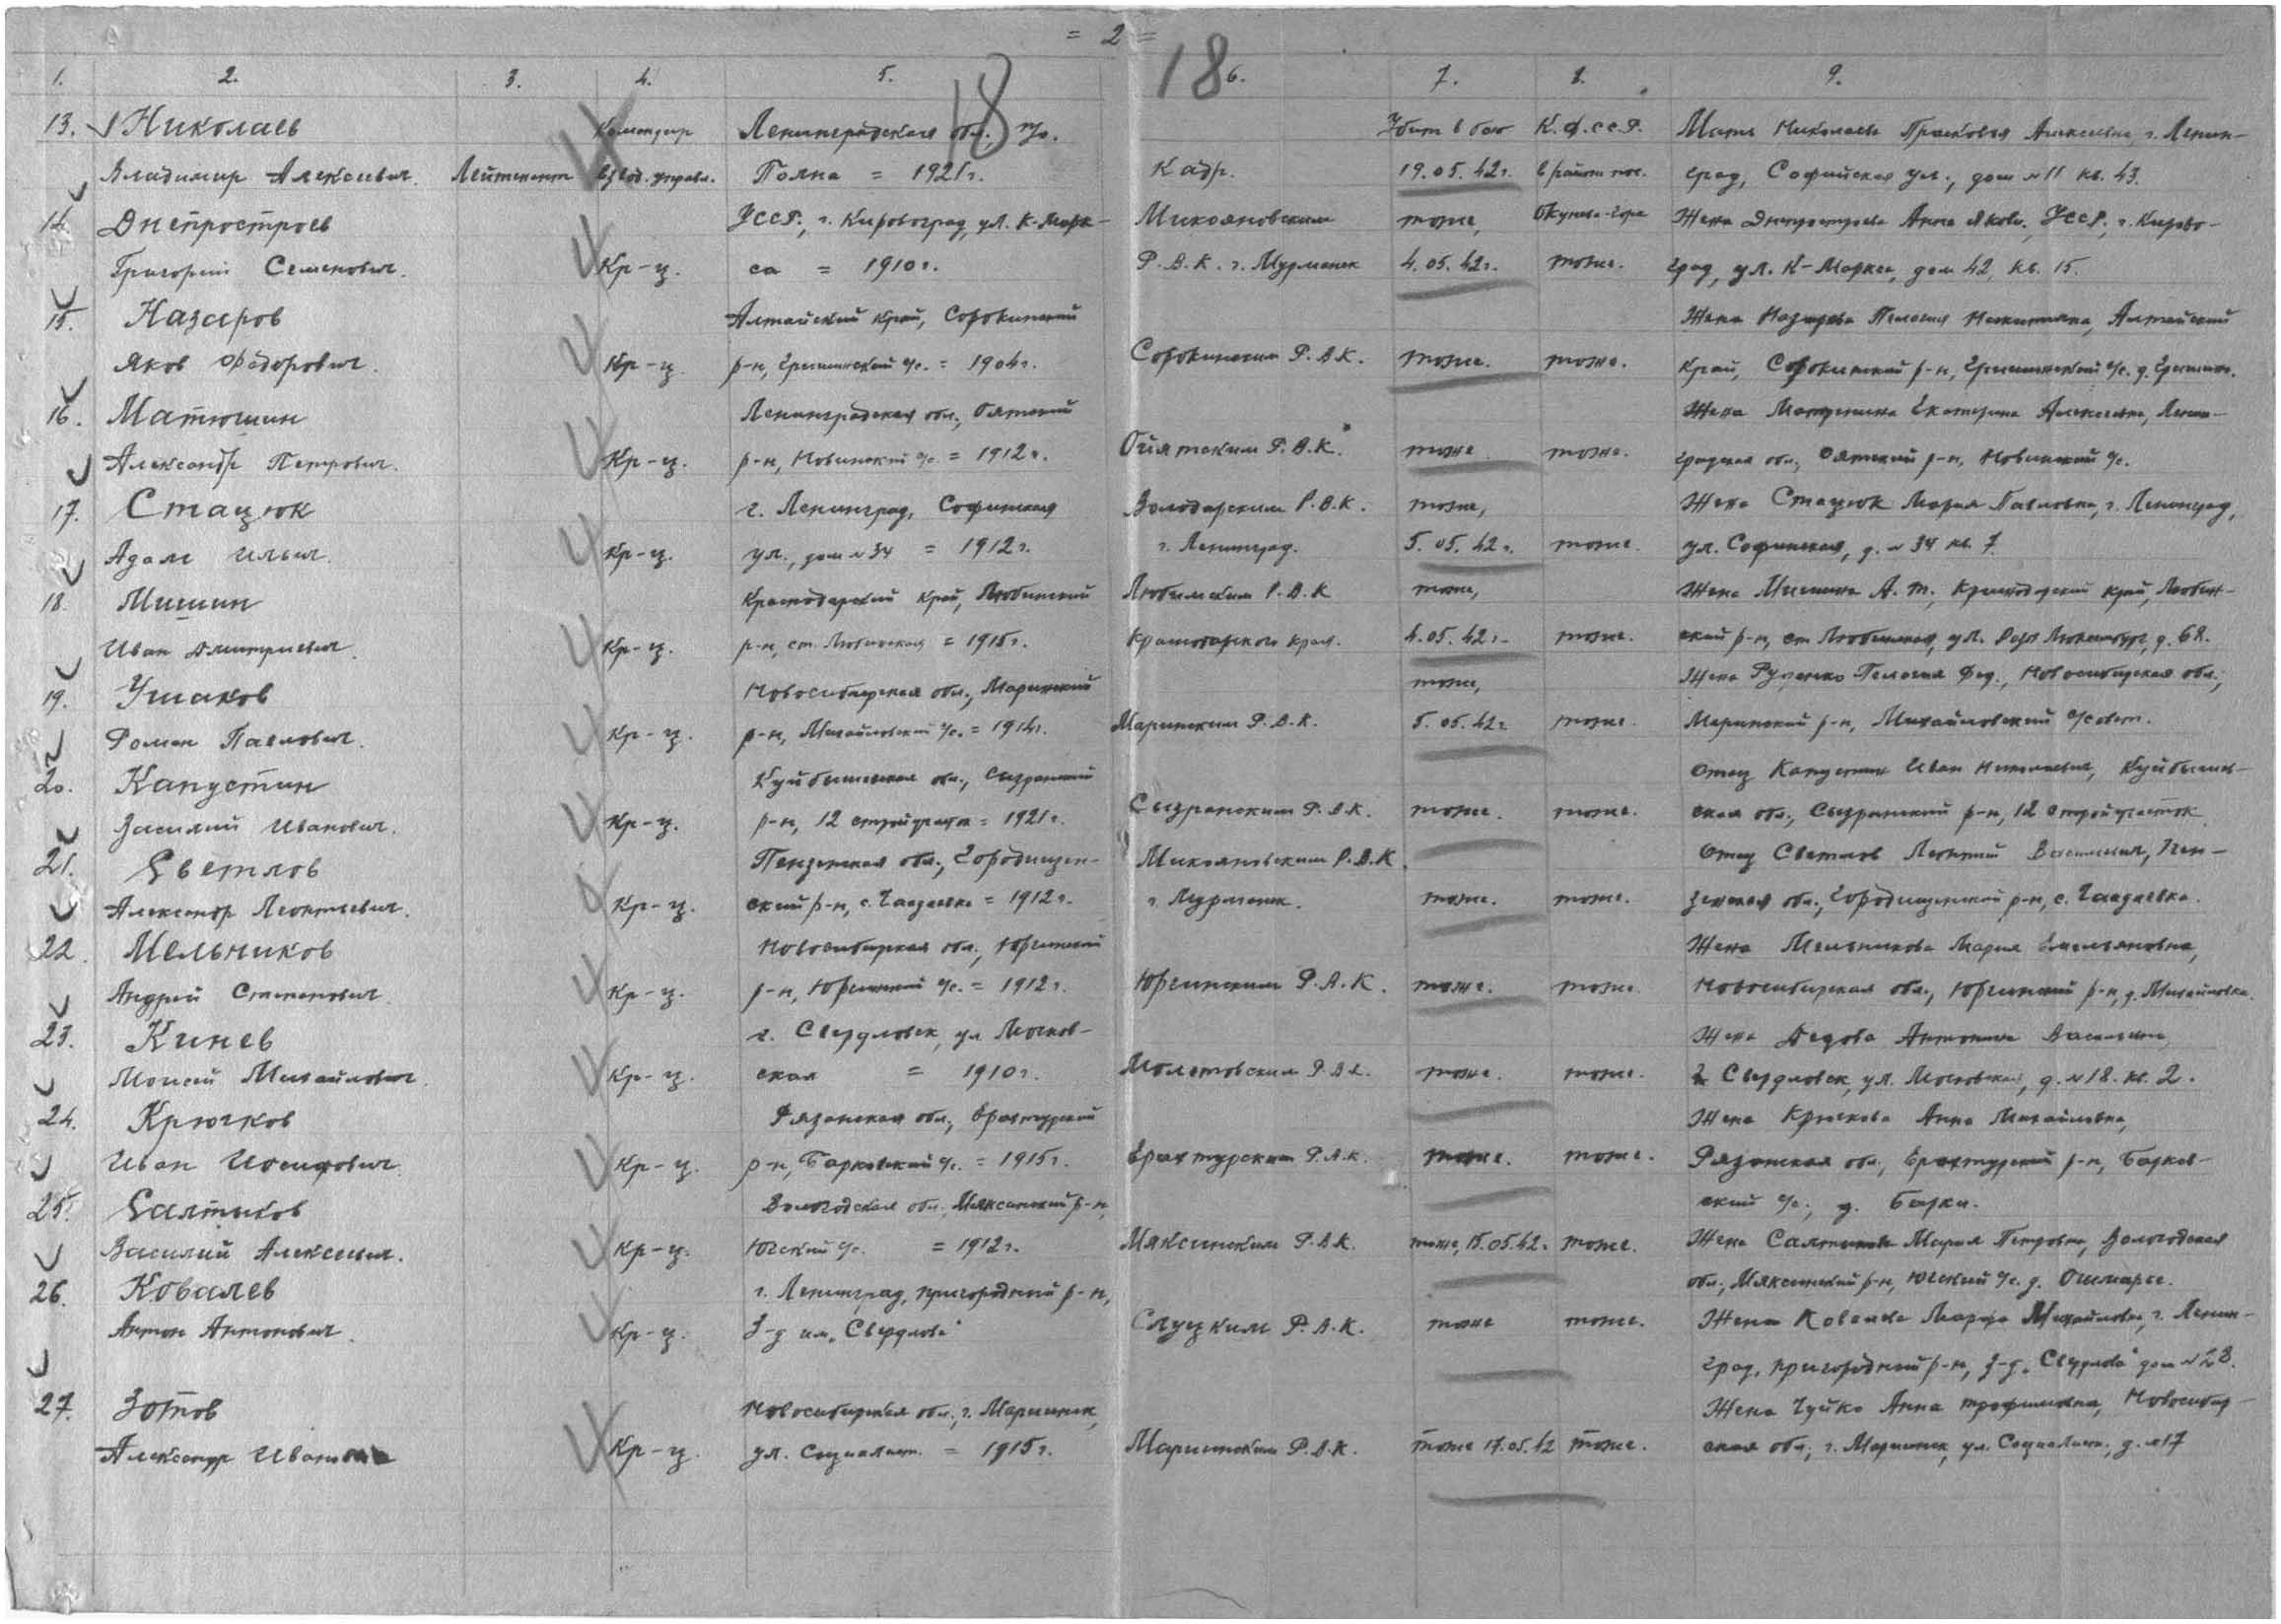 = 2 =
18
18
1. 2. 3. 4. 5. 6. 7. 8. 9.
13. Николаев Командир Ленинградская обл., Убит в бою К.Ф.С.С.Р. Мать Николаева Прасковья Алексеевна, г. Ленин-
Владимир Алексеевич. Лейтенант взвод. управл. Полна = 1921г. Кадр. 19.05.42г. в район пос. град, Софийская ул., дом №11 кв. 43.
14. Днепростроев УССР, г. Кировоград, ул. К-Марк- Микояновским тоже, Окунева-Гора Жена Днепростроева Анна Яковл., УССР, г. Кирово-
Григорий Семенович. Кр-ц. са = 1910г. Р.В.К. г. Мурманск 4.05.42г. тоже. град, ул. К-Маркса, дом 42, кв. 15.
15. Назаров Алтайский край, Сорокинский Жена Назарова Пелагия Никитична, Алтайский
Яков Федорович. Кр-ц. р-н, Гришинский с/с. = 1904г. Сорокинским Р.В.К. тоже. тоже. край, Сорокинский р-н, Гришинский с/с. д. Гришин.
16. Матюшин Ленинградская обл., Оятский Жена Матюшина Екатерина Алексеевна, Ленин-
Александр Петрович. Кр-ц. р-н, Новинский с/с. = 1912г. Ойятским Р.В.К. тоже. тоже. градская обл., Оятский р-н, Новинский с/с.
17. Стацюк г. Ленинград, Софийская Володарским Р.В.К. тоже, Жена Стацюк Мария Павловна, г. Ленинград,
Адам Ильич. Кр-ц. ул., дом №34 = 1912г. г. Ленинград. 5.05.42г. тоже. ул. Софийская, д. №34 кв. 7.
18. Мишин Краснодарский край, Лабинский Лабинским Р.В.К. тоже, Жена Мишина А.Т., Краснодарский край, Лабин-
Иван Дмитриевич. Кр-ц. р-н, ст. Лабинская = 1915г. Краснодарского края. 4.05.42г. тоже. ский р-н, ст. Лабинская, ул. Роза Люксембург, д. 68.
19. Ушаков Новосибирская обл., Мариинский тоже, Жена Руденко Пелагия Фед., Новосибирская обл.,
Роман Павлович. Кр-ц. р-н, Михайловский с/с. = 1914г. Мариинским Р.В.К. 5.05.42г. тоже. Мариинский р-н, Михайловский с/совет.
20. Капустин Куйбышевская обл., Сызранский Отец Капустин Иван Николаевич, Куйбышев-
Василий Иванович. Кр-ц. р-н, 12 стройучасток = 1921г. Сызранским Р.В.К. тоже. тоже. ская обл., Сызранский р-н, 12 стройучасток
21. Светлов Пензенская обл., Городищен- Микояновским Р.В.К. Отец Светлов Леонтий Васильевич, Пен-
Александр Леонтьевич. Кр-ц. ский р-н, с. Чаадаевка = 1912г. г. Мурманск. тоже. тоже. зенская обл., Городищенский р-н, с. Чаадаевка.
22. Мельников Новосибирская обл., Юргинский Жена Мельникова Мария Емельяновна,
Андрей Степанович. Кр-ц. р-н, Юргинский с/с. = 1912г. Юргинским Р.В.К. тоже. тоже. Новосибирская обл., Юргинский р-н, д. Михайловка.
23. Кинев г. Свердловск, ул. Москов- Жена Дедова Антонина Васильевна,
Моисей Михайлович. Кр-ц. ская = 1910г. Молотовским Р.В.К. тоже. тоже. г. Свердловск, ул. Московская, д. №18. кв. 2.
24. Крючков Рязанская обл., Ерахтурский Жена Крючкова Анна Михайловна,
Иван Иосифович. Кр-ц. р-н, Барковский с/с. = 1915г. Ерахтурским Р.В.К. тоже. тоже. Рязанская обл., Ерахтурский р-н, Барков-
25. Салтыков Вологодская обл., Мяксинский р-н, ский с/с., д. Барки.
Василий Алексеевич. Кр-ц. Югский с/с. = 1912г. Мяксинским Р.В.К. тоже, 15.05.42г. тоже. Жена Салтыкова Мария Петровна, Вологодская
26. Ковалев г. Ленинград, пригородный р-н, обл., Мяксинский р-н, Югский с/с. д.
Антон Антонович. Кр-ц. З-д им. „Свердлова" Слуцким Р.В.К. тоже тоже. Жена Ковалева Марфа Михайловна, г. Ленин-
град, пригородный р-н, З-д. „Свердлова" дом №28.
27. Зотов Новосибирская обл., г. Мариинск, Жена Чуйко Анна Трофимовна, Новосибир-
Александр Иванович Кр-ц. ул. Социалист. = 1915г. Мариинским Р.В.К. тоже 17.05.42 тоже. ская обл., г. Мариинск, ул. Социалист., д. №17